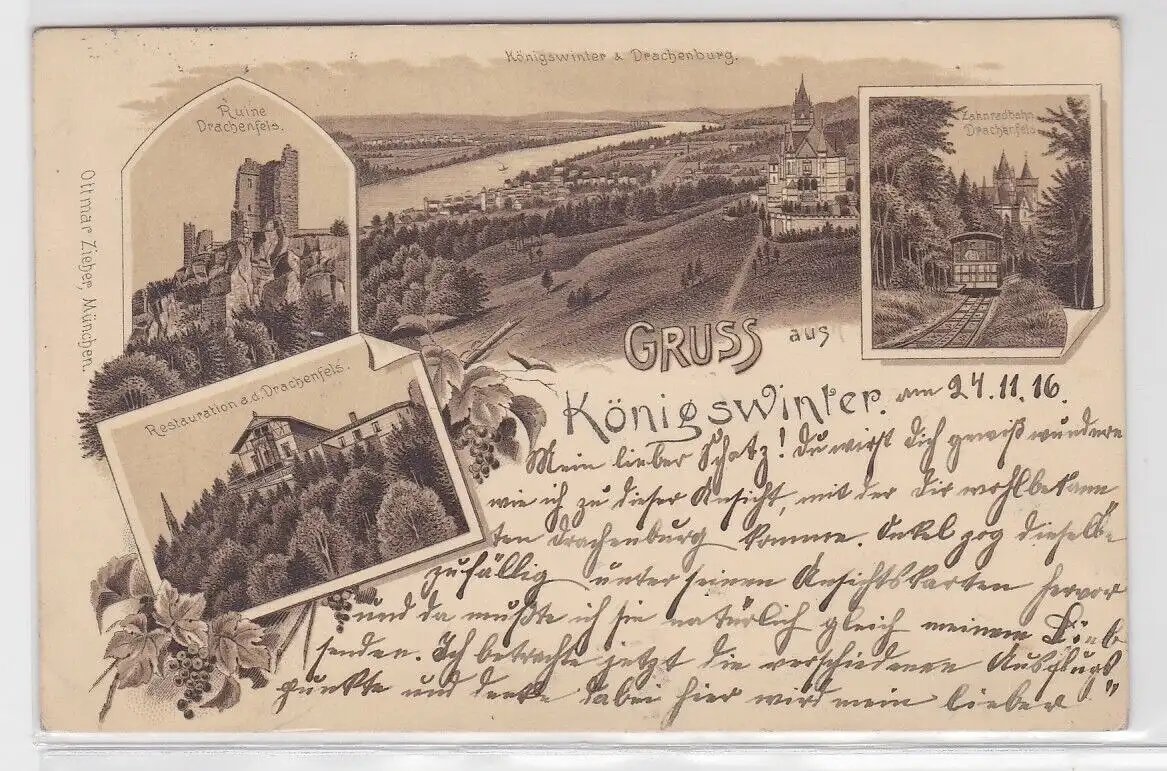 Königswinter & Drachenburg.
Ruine
Drachenfels.
Zahnradbahn
Drachenfels
Ottmar Zieher, München.
Restauration a.d. Drachenfels.
GRUSS aus
Königswinter. am 24.11.16.
Mein lieber Schatz! Du wirst Dich gewiß wundern
wie ich zu dieser Ansicht, mit der Dir wohlbekann
ten Drachenburg komme. Onkel zog dieselbe
zufällig unter seinen Ansichtskarten hervor
und da mußte ich sie natürlich gleich meinem
senden. Ich betrachte jetzt die verschiedenen Ausflugs"
punkte und denke dabei hier wird mein lieber